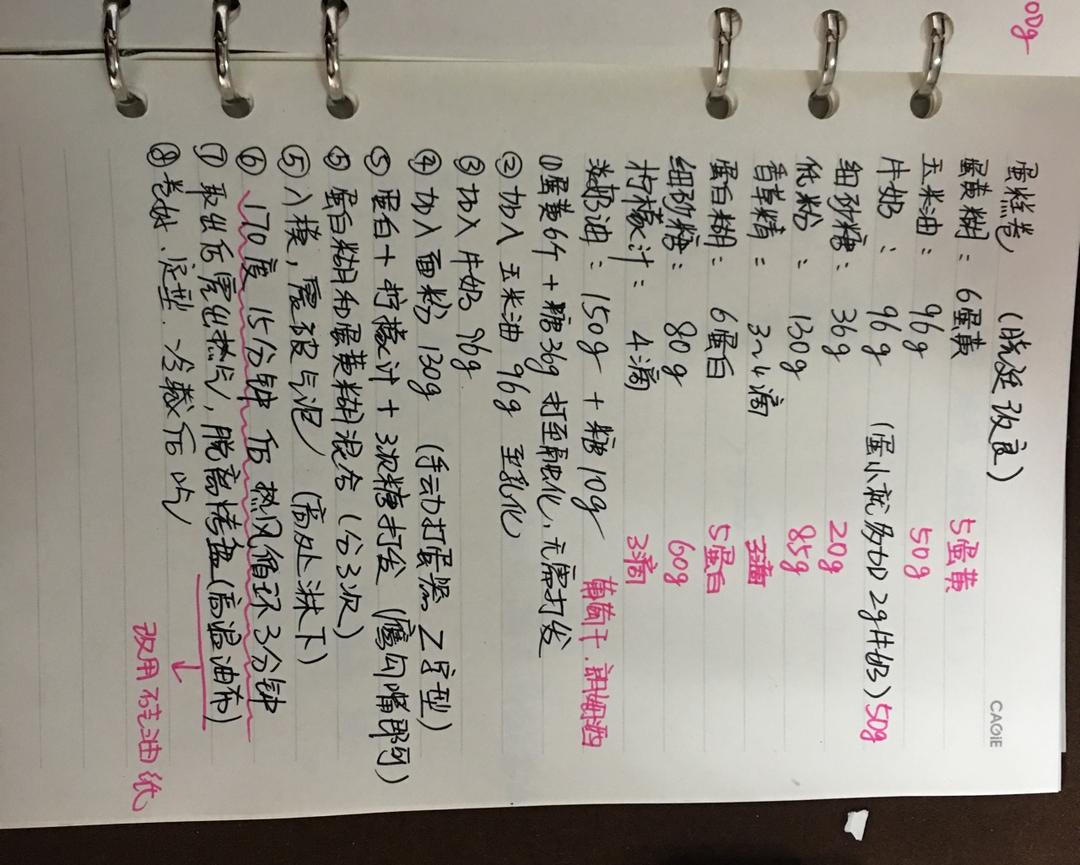 00g
CAGiE
蛋糕卷 (晓廷改良)
蛋黄糊: 6蛋黄 5蛋黄
玉米油: 96g 50g
牛奶: 96g (蛋小就多加2g牛奶) 50g
细砂糖: 36g 20g
低粉: 130g 85g
香草精: 3~4滴 3滴
蛋白糊: 6蛋白 5蛋白
细砂糖: 80g 60g
柠檬汁: 4滴 3滴
淡奶油: 150g + 糖10g 葡萄干.朗姆酒
①蛋黄6个+糖36g 打至融化.无需打发
②加入玉米油 96g 至乳化
③加入牛奶 96g
④加入面粉 130g (手动打蛋器 Z字型)
⑤蛋白+柠檬汁+3次糖打发 (鹰勾嘴即可)
⑤蛋白糊和蛋黄糊混合 (分3次)
⑤入模,震破气泡 (高处淋下)
⑥170度 15分钟后 热风循环3分钟
⑦取出后震出热气,脱离烤盘(高温油布)
⑧卷好.定型.冷藏后吃
改用硅油纸